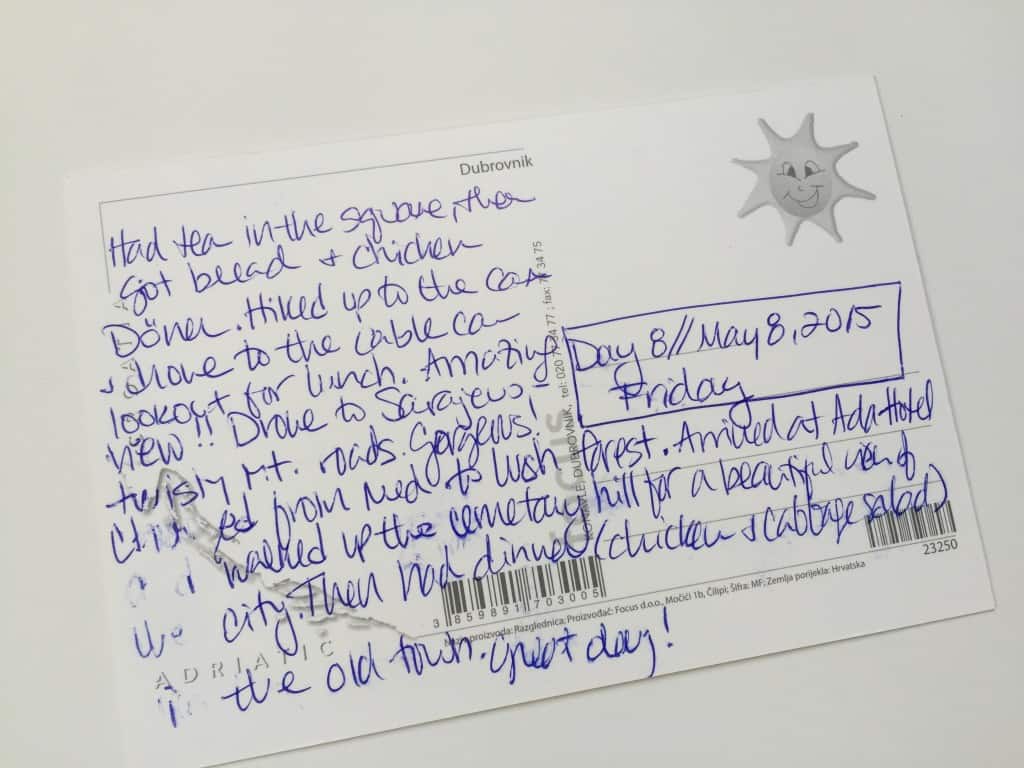 Dubrovnik
Had tea in the square, then
got bread + chicken
Döner. Hiked up to the car
+ drove to the cable car
lookout for lunch. Amazing
view!! Drove to Sarajevo
twisty mt. roads. Gorgeous!
from med to lush forest. Arrived at Ada Hotel
walked up the cemetary hill for a beautiful view of
the city. Then had dinner (chicken + cabbage salad)
in the old town. Great day!
Day 8 // May 8, 2015
Friday
tel: 020 77 34 77 ; fax: 77 34 75
DUBROVNIK,
3 859891 703005
23250
Naziv proizvoda: Razglednica; Proizvođač: Focus d.o.o., Močići 1b, Čilipi; Šifra: MF; Zemlja porijekla: Hrvatska
ADRIATIC